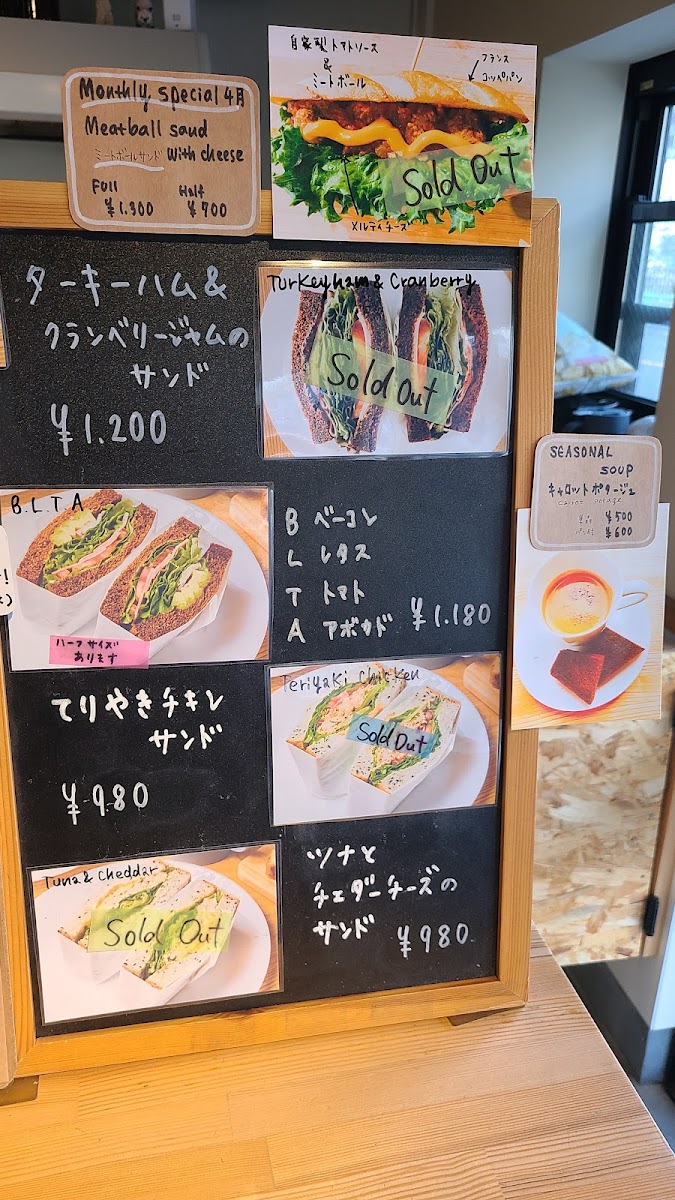 Monthly special 4月
Meatball sand
ミートボールサンド with cheese
Full Half
¥1.300 ¥700
自家製トマトソース
&
ミートボール
フランス
コッペパン
Sold Out
メルティチーズ
ターキーハム&
クランベリージャムの
サンド
¥1.200
Turkeyham & Cranberry
Sold Out
SEASONAL
SOUP
キャロットポタージュ
carrot potage
¥500
¥600
B.L.T.A
ハーフサイズ
あります
B ベーコン
L レタス
T トマト
A アボカド ¥1.180
てりやきチキン
サンド
¥980
Teriyaki Chicken
Sold Out
Tuna & Cheddar
Sold Out
ツナと
チェダーチーズの
サンド
¥980